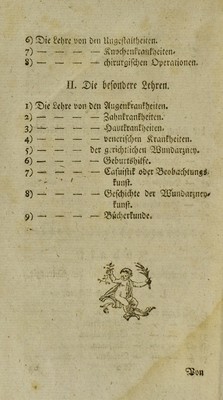 6) Die Lehre von den Ungestaltheiten.
7) — — — — Knochenkrankheiten.
8) — — — — chirurgischen Operationen.
II. Die besondere Lehren.
1) Die Lehre von den Augenkrankheiten.
2) — — — — Zahnkrankheiten.
3) — — — — Hautkrankheiten.
4) — — — — venerischen Krankheiten.
5) — — — — der gerichtlichen Wundarzney.
6) — — — — Geburtshilfe.
7) — — — — Casuistik oder Beobachtungs-
kunst.
8) — — — — Geschichte der Wundarzney-
kunst.
9) — — — — Bücherkunde.
Von